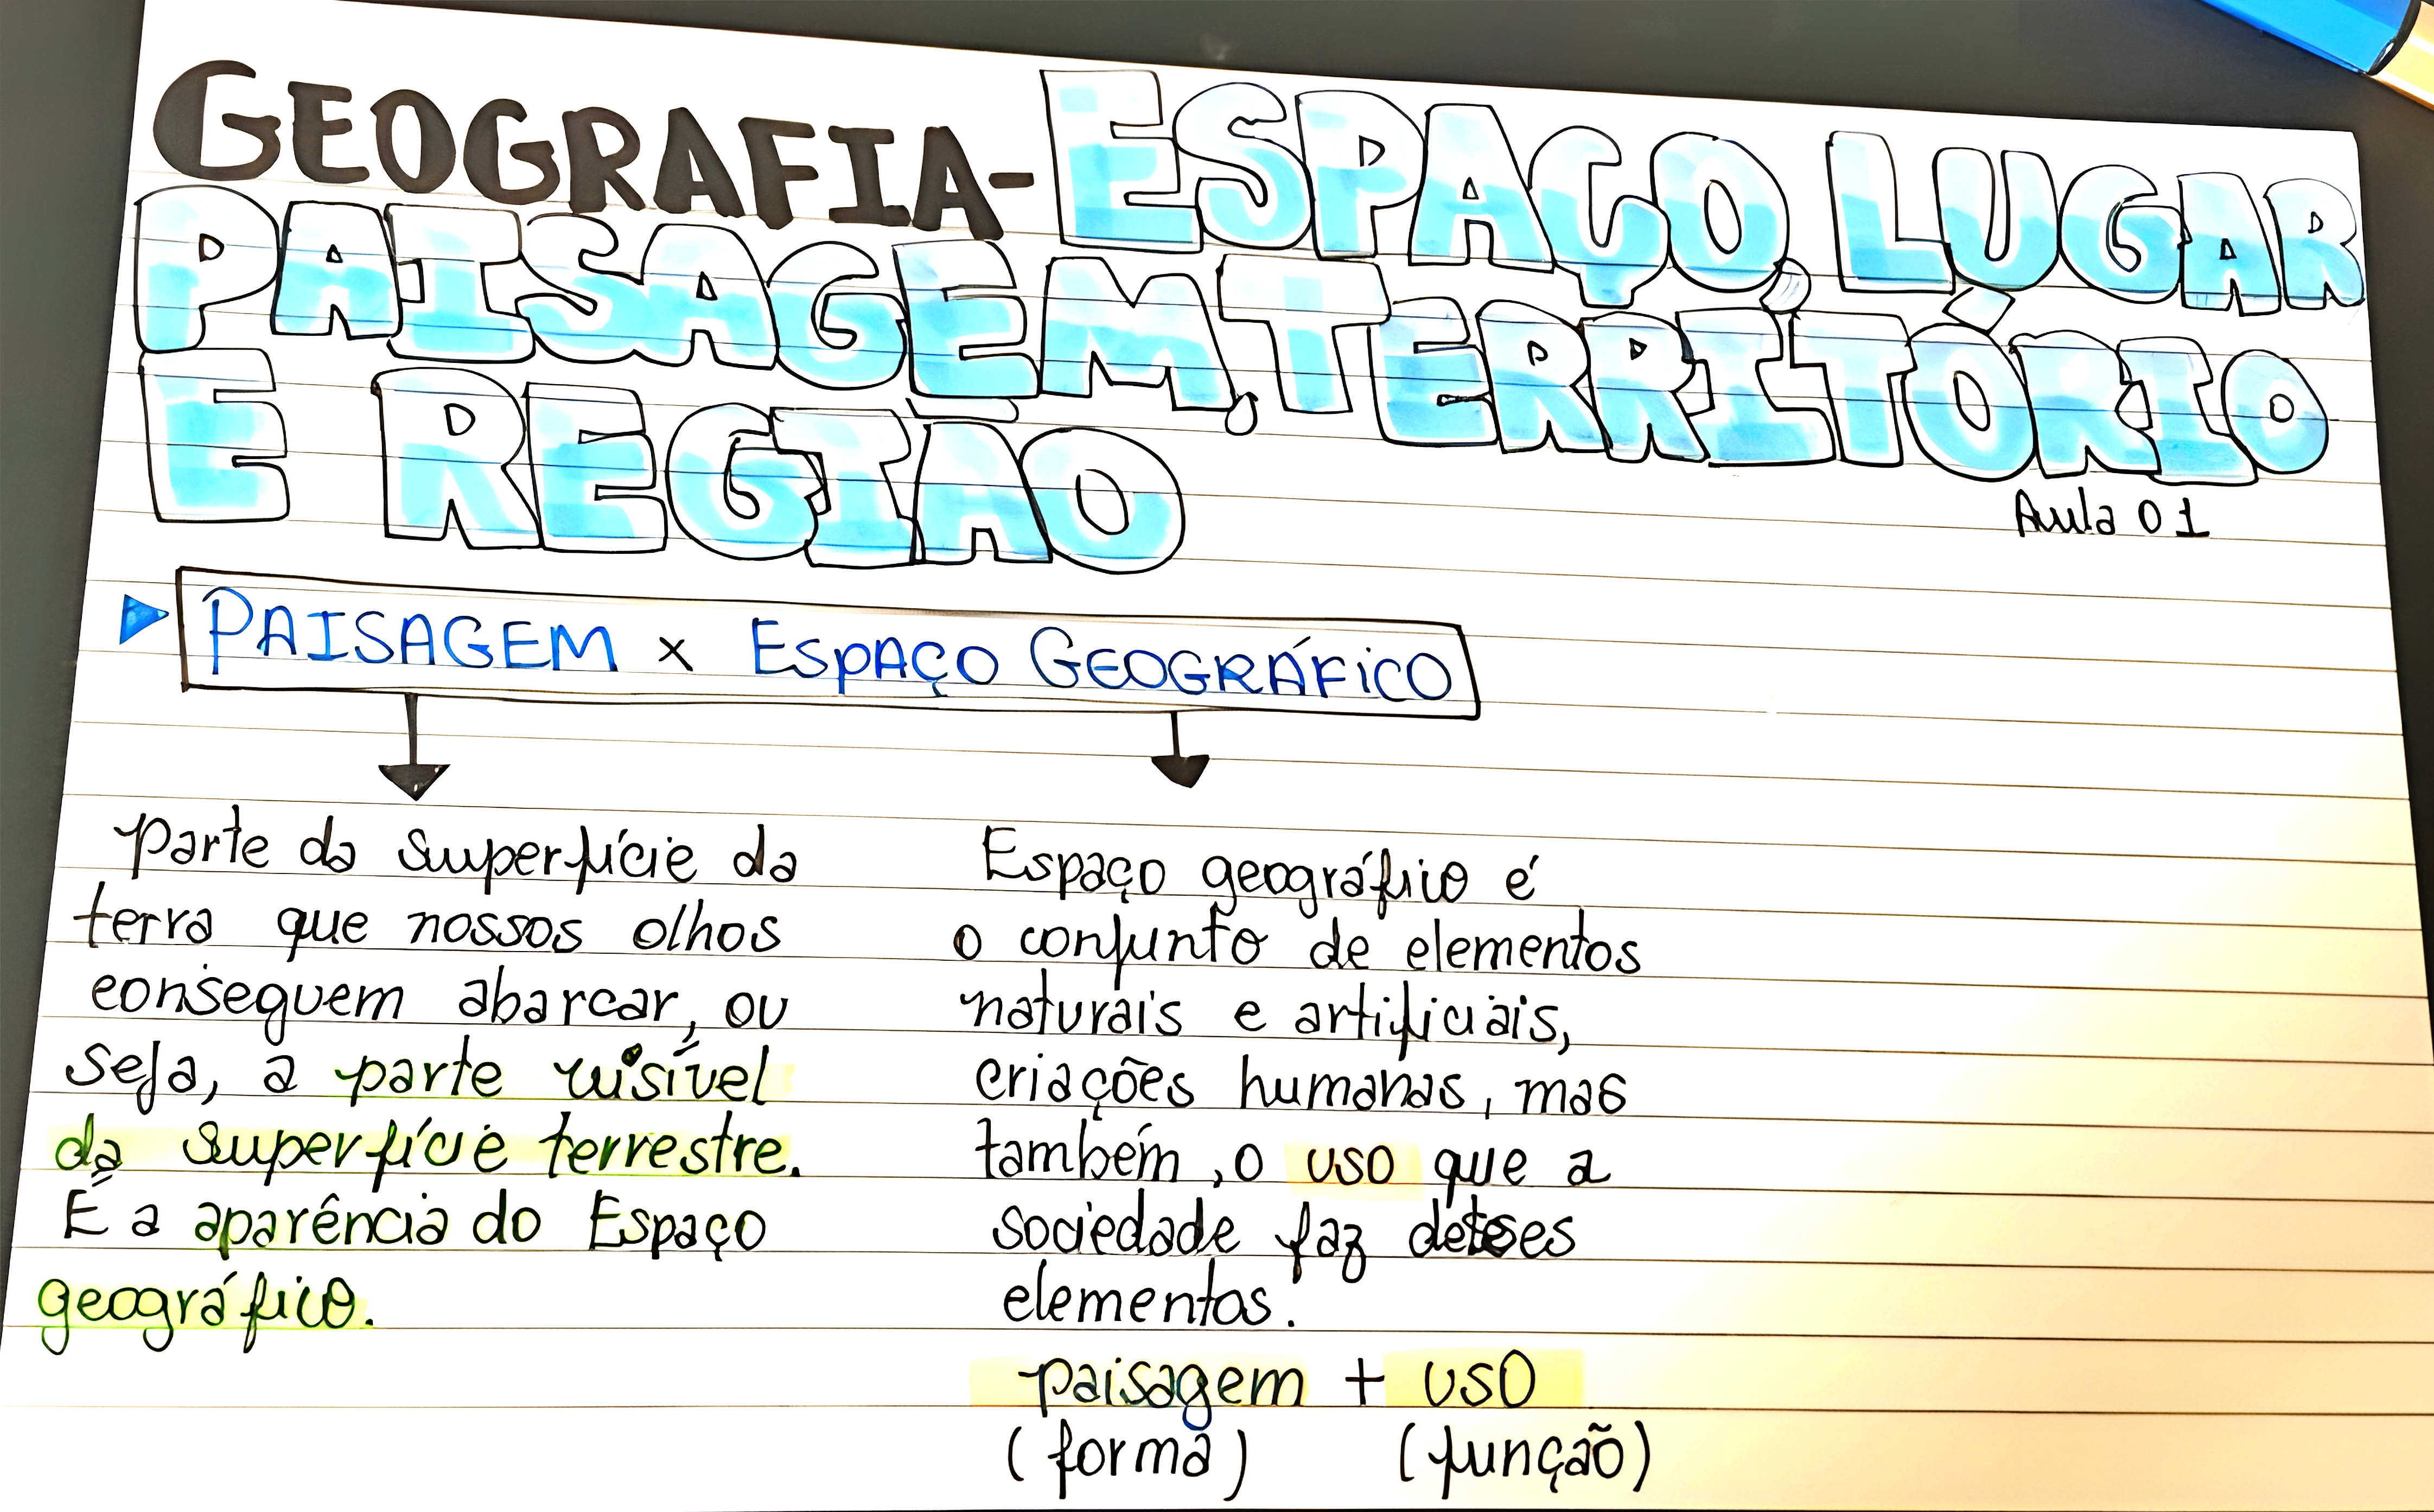 GEOGRAFIA - ESPAÇO, LUGAR
PAISAGEM, TERRITÓRIO
E REGIÃO
Aula 01
PAISAGEM x ESPAÇO GEOGRÁFICO
Parte da superfície da
terra que nossos olhos
conseguem abarcar, ou
seja, a parte visível
da superfície terrestre.
É a aparência do Espaço
geográfico.
Espaço geográfico é
o conjunto de elementos
naturais e artificiais,
criações humanas, mas
também, o uso que a
sociedade faz desses
elementos.
paisagem + uso
(forma) (função)